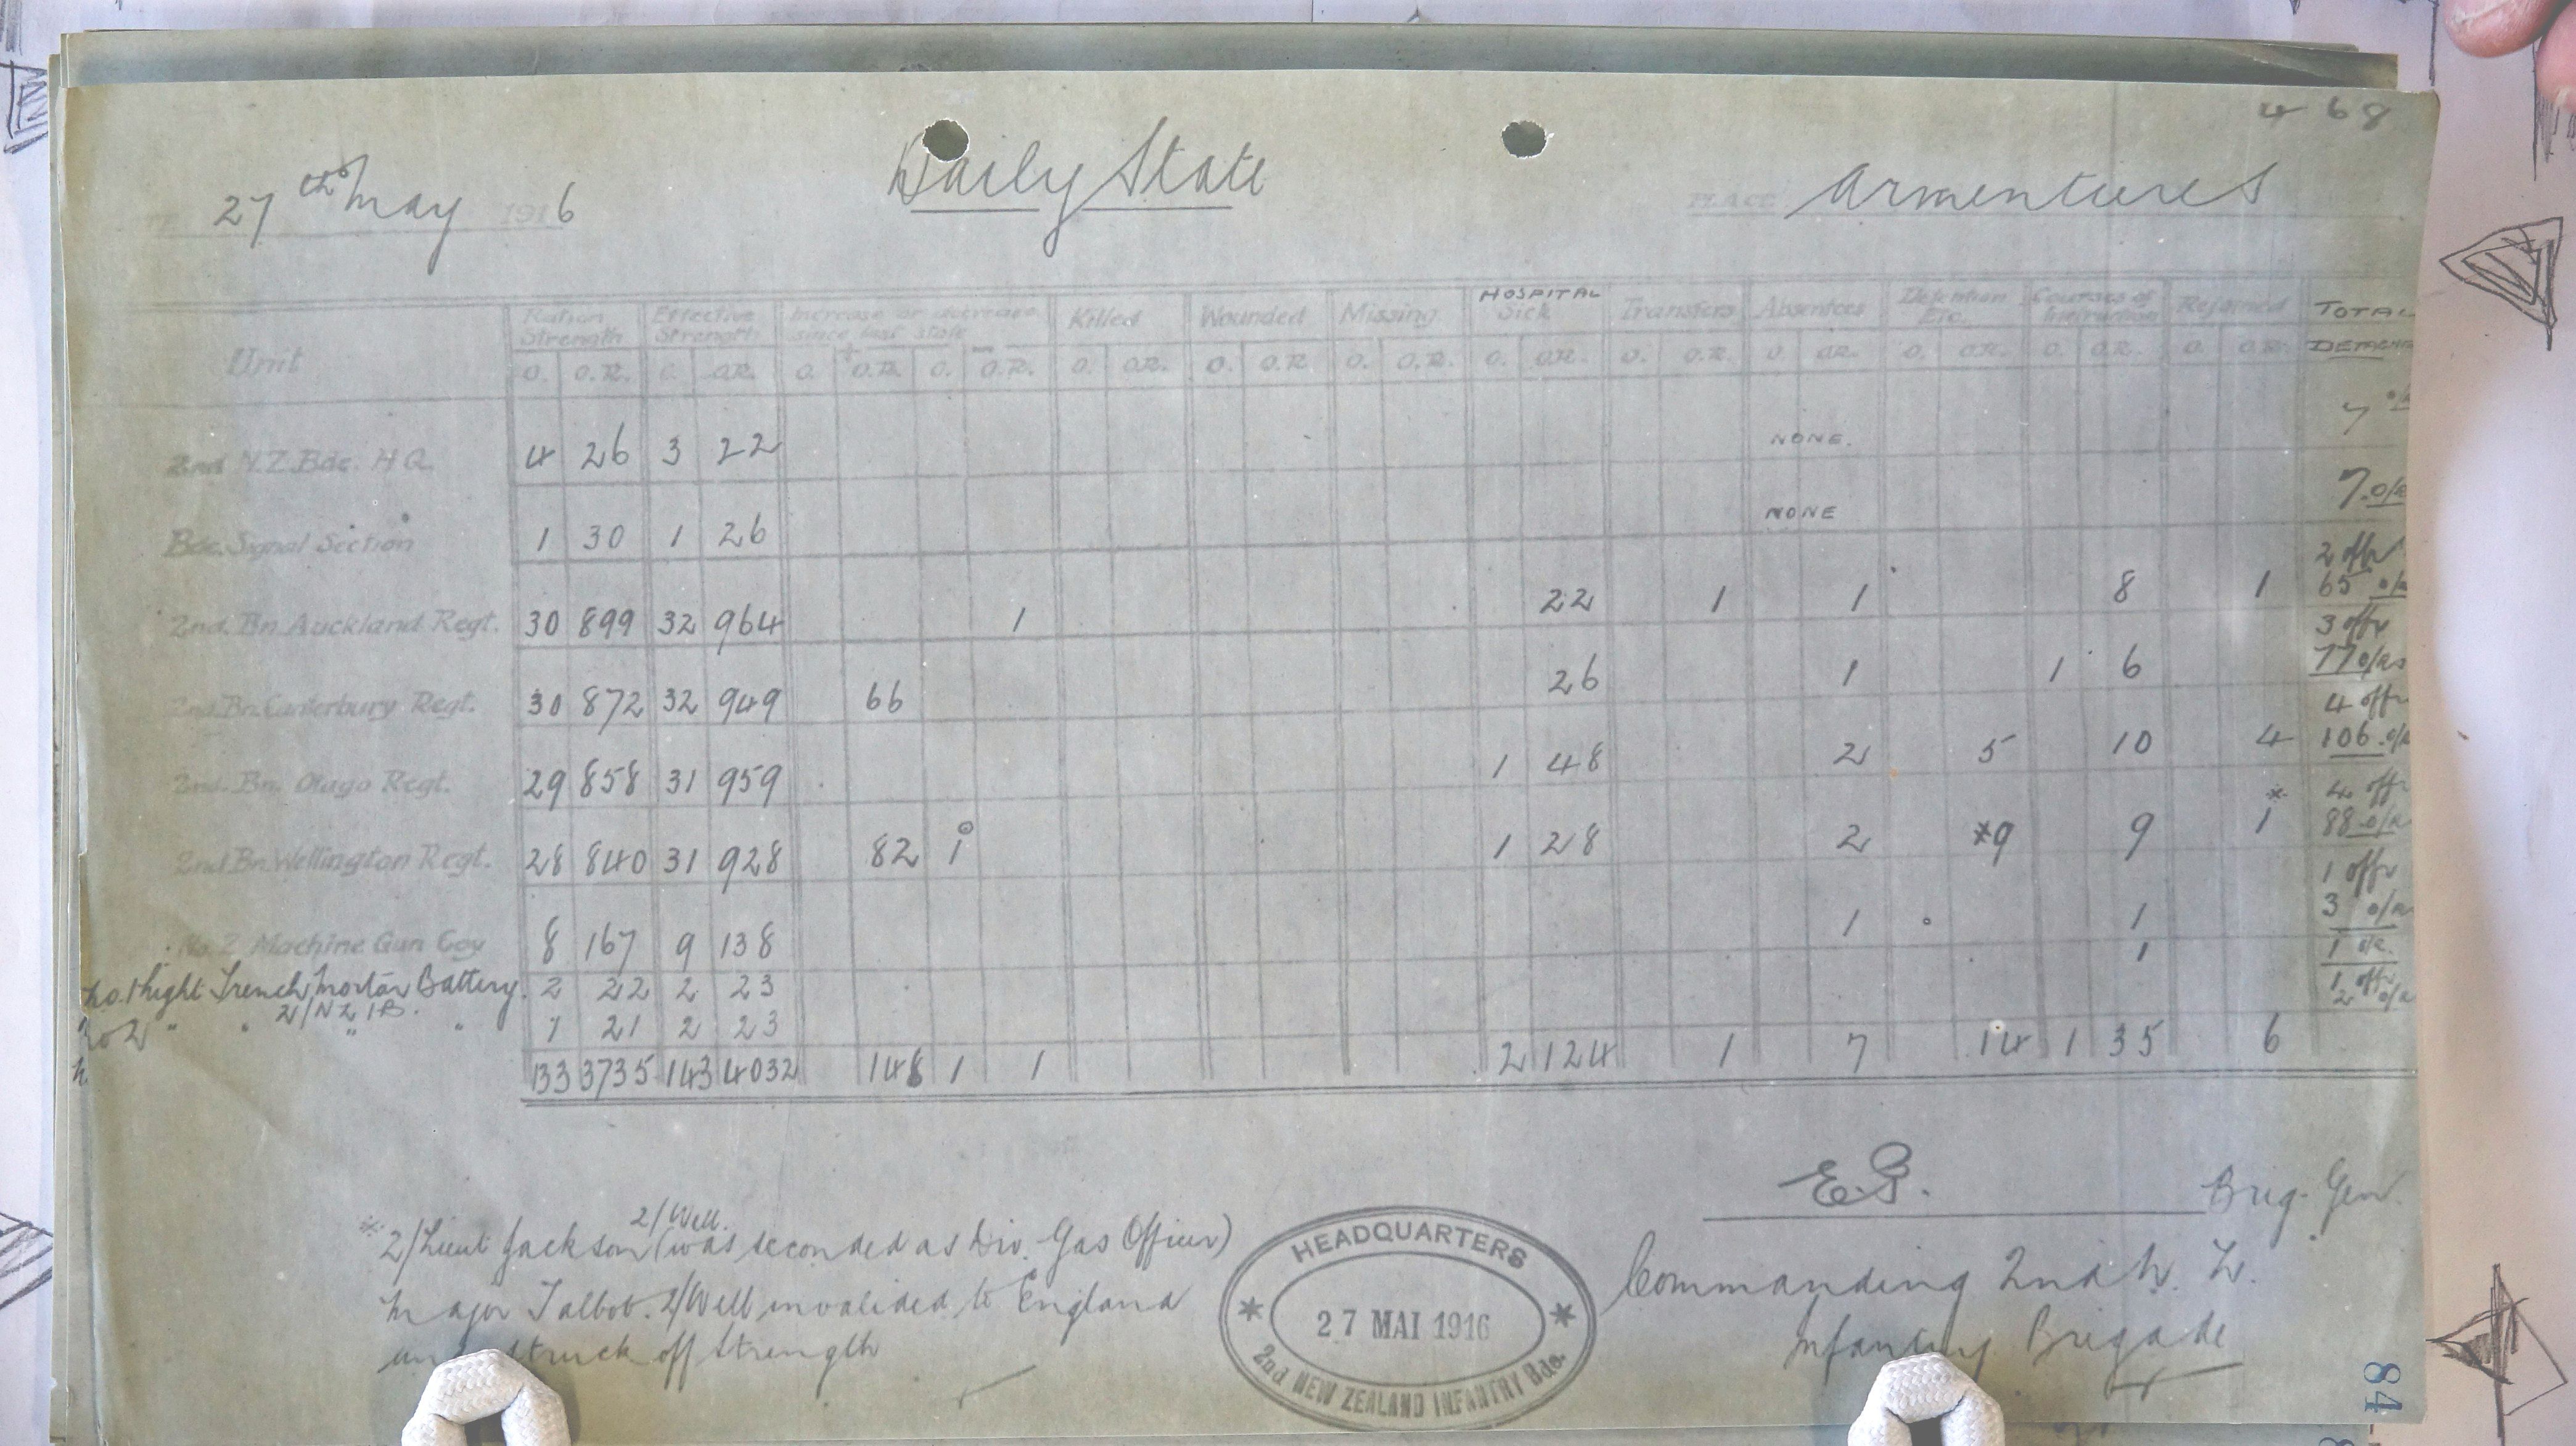 4 68
27th May 1916
Daily State
PLACE Armentieres
Unit
Ration Strength
Effective Strength
Increase or decrease since last state
+ −
Killed
Wounded
Missing
HOSPITAL Sick
Transfers
Absentees
Detention Etc.
Courses of Instruction
Rejoined
TOTAL
O. O.R. O. O.R. O. O.R. O. O.R. O. O.R. O. O.R. O. O.R. O. O.R. O. O.R. O. O.R. O. O.R. O. O.R. O. O.R.
2nd N.Z. Bde. H Q. 4 26 3 22 NONE. 7
Bde. Signal Section 1 30 1 26 NONE 7 o/r
2nd. Bn Auckland Regt. 30 899 32 964 1 22 1 1 8 1 2 offr 65 o/r
2nd. Bn. Canterbury Regt. 30 872 32 949 66 26 1 1 6 3 offr 77 o/rs
2nd. Bn. Otago Regt. 29 858 31 959 1 48 2 5 10 4 4 offr 106 o/r
2nd. Bn. Wellington Regt. 28 840 31 928 82 1 1 28 2 *9 9 1* 4 offr 88 o/r
No. 2 Machine Gun Coy 8 167 9 138 1 1 1 offr 3 o/r
No. 1 Light Trench Mortar Battery. 2 22 2 23 1 1 o/r.
2/NZ IB.
No 2 " " " " 1 21 2 23 1 offr 2 o/r
133 3735 143 4032 148 1 1 2 124 1 7 14 1 35 6
E.G. Brig. Gen.
Commanding 2nd N. Z.
Infantry Brigade
2/Well.
* 2/Lieut Jackson (was seconded as Div. Gas Officer)
Major Talbot. 2/Well invalided to England
and struck off strength
HEADQUARTERS
* 27 MAI 1916 *
2nd NEW ZEALAND INFANTRY Bde.
84